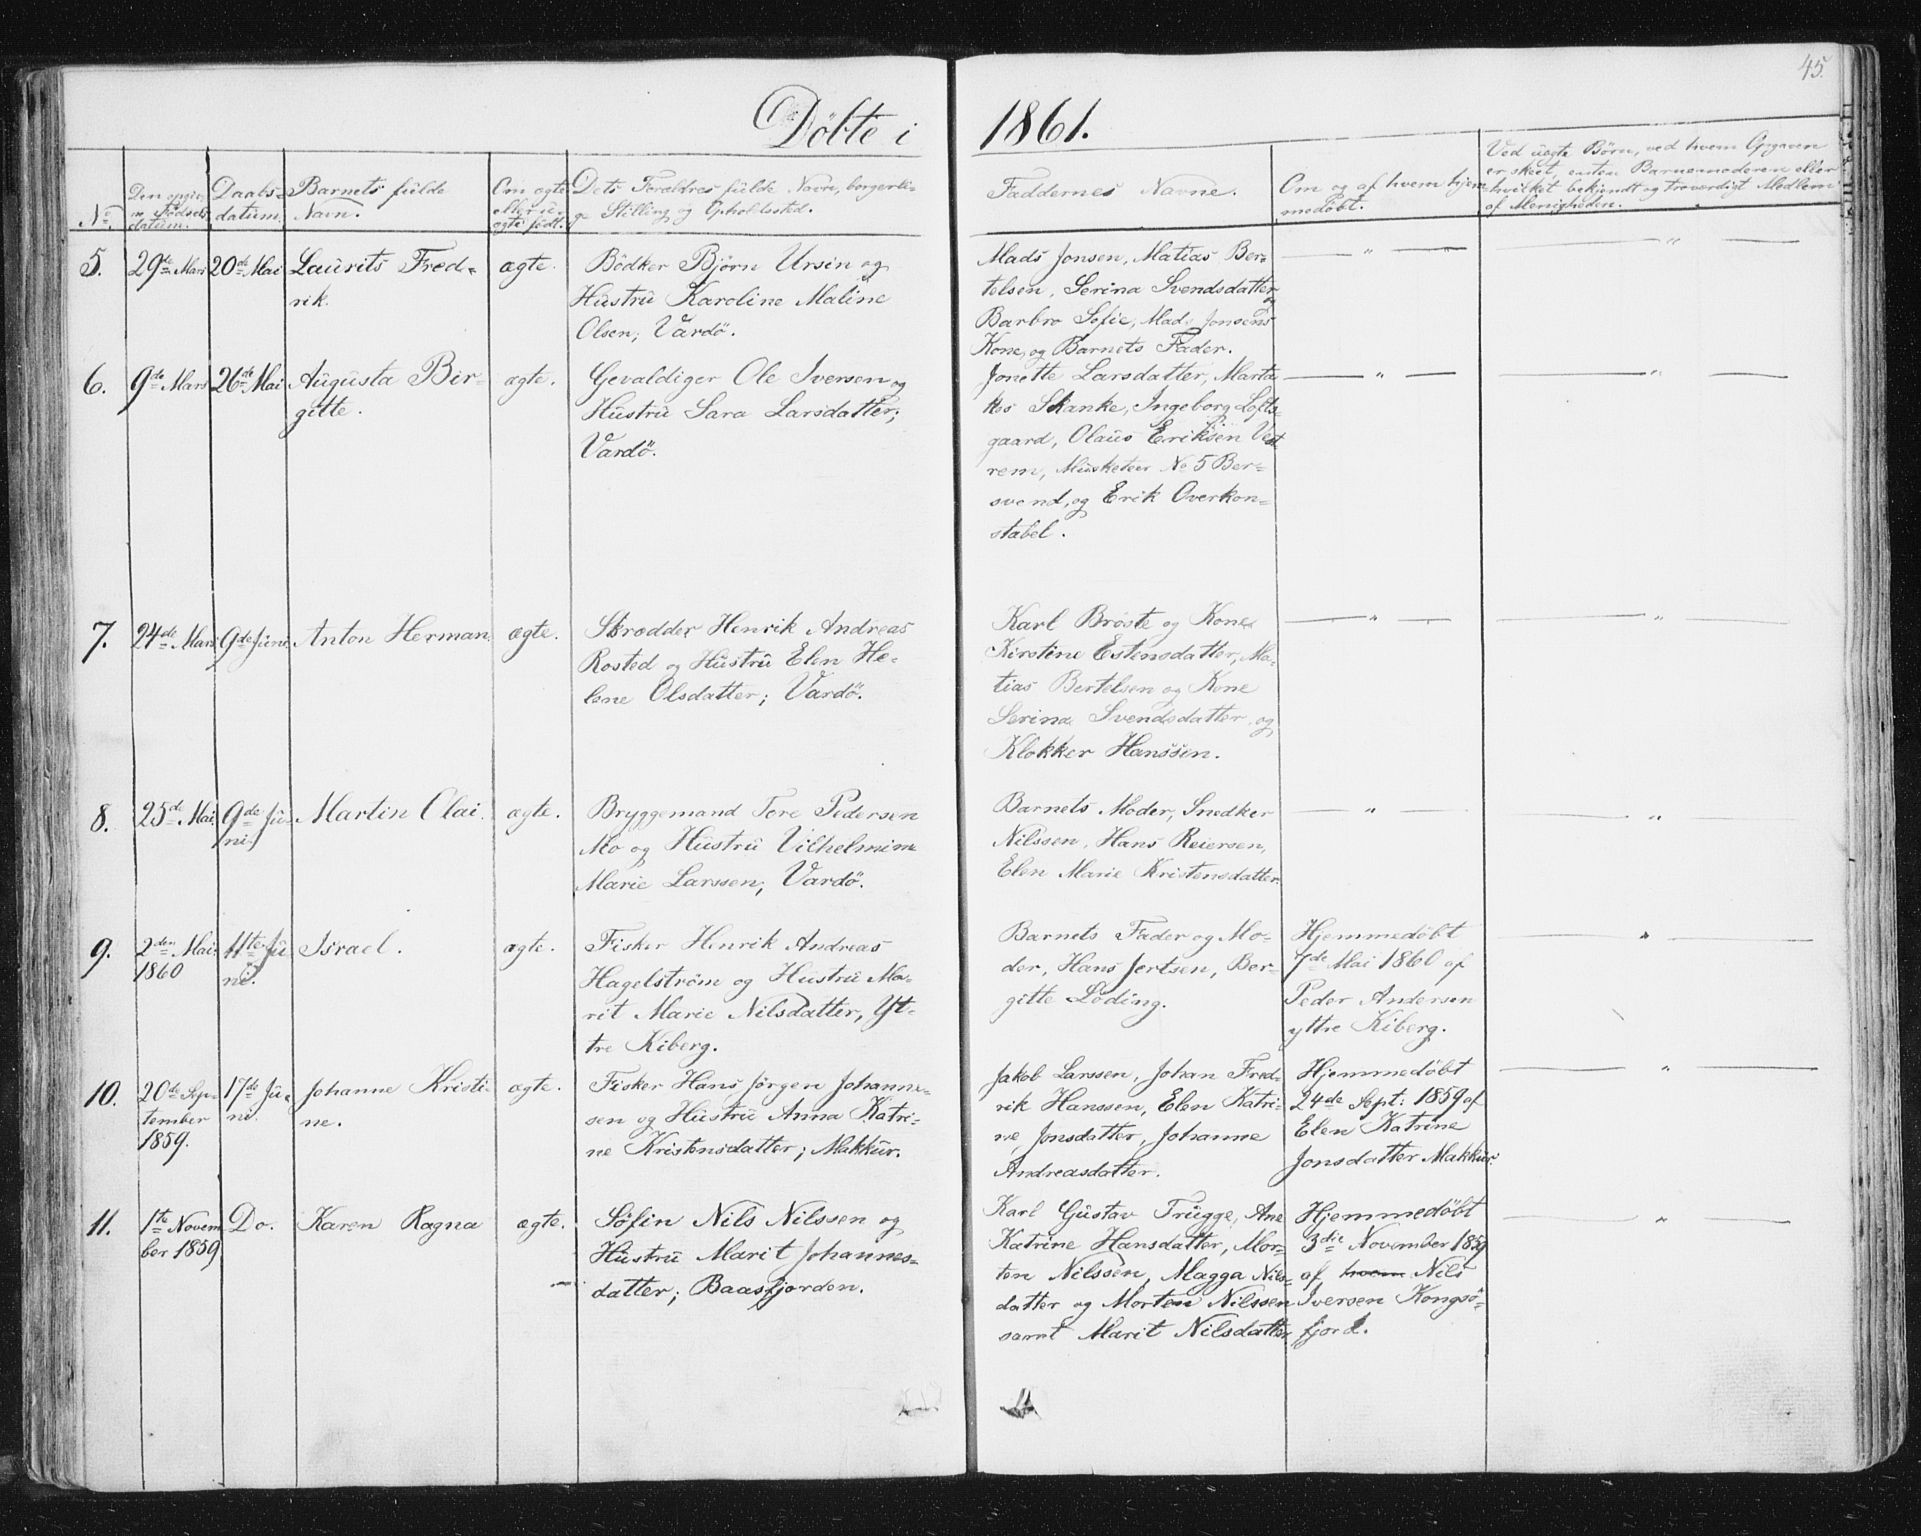 45.
Döbte i 1861.
No.
Den opgiv-
ne Födsels-
datum.
Daabs-
datum.
Barnets fulde
Navn.
Om ægte
eller u-
ægte födt.
Dets Forældres fulde Navn, borgerli-
ge Stilling og Opholdssted.
Faddernes Navne.
Om og af hvem hjem-
medöbt.
Ved uægte Børn, ved hvem Opgaven
er skeet, enten Barnemoderen eller
hvilket bekjendt og troværdigt Medlem
af Menigheden.
5.
29de Mars
20de Mai
Laurits Fred-
rik.
ægte.
Bödker Björn Ursin og
Hustru Karoline Maline
Olsen; Vardö.
Mads Jonsen, Matias Ber-
telsen, Serina Svendsdatter og
Barbro Sofie, Mads Jonsens
Kone, og Barnets Fader.
6.
9de Mars
26de Mai
Augusta Bir-
gitte.
ægte.
Gevaldiger Ole Iversen og
Hustru Sara Larsdatter;
Vardö.
Jonette Larsdatter, Marta
hos Skanke, Ingeborg Lofts-
gaard, Olaus Eriksen Vest
rem, Musketeer No 5 Ber-
svend, og Erik Overkon-
stabel.
7.
24de Mars
9de Juni
Anton Herman
ægte.
Skrædder Henrik Andreas
Rosted og Hustru Elen He-
lene Olsdatter; Vardö.
Karl Bröste og Kone
Kirstine Estensdatter, Ma-
tias Bertelsen og Kone
Serina Svendsdatter, og
Klokker Hanssen.
8.
25de Mai
9de Ju-
ni.
Martin Olai.
ægte.
Bryggemand Tore Pedersen
Mo og Hustru Vilhelmine
Marie Larssen; Vardö.
Barnets Moder, Snedker
Nilssen, Hans Reiersen,
Elen Marie Kristensdatter.
9.
2den Mai
1860
11te Ju
ni.
Israel.
ægte.
Fisker Henrik Andreas
Hagelström og Hustru Ma-
rit Marie Nilsdatter, Yt-
tre Kiberg.
Barnets Fader og Mo-
der, Hans Jertsen, Ber-
gitte Löding.
Hjemmedöbt
7de Mai 1860 af
Peder Andersen
yttre Kiberg.
10.
20de Sep-
tember
1859.
17de Ju-
ni.
Johanne Kristi-
ne.
ægte.
Fisker Hans Jörgen Johanne-
sen og Hustru Anna Katri-
ne Kristensdatter; Makkur.
Jakob Larssen, Johan Fred-
rik Hanssen, Elen Katri-
ne Jonsdatter, Johanne
Andreasdatter.
Hjemmedöbt
24de Sept: 1859 af
Elen Katrine
Jonsdatter Makkur.
11.
1te Novem
ber 1859
Do.
Karen Ragna
ægte.
Söfin Nils Nilssen og
Hustru Marit Johannes-
datter; Baasfjorden.
Karl Gustav Trugge, Ane
Katrine Hansdatter, Mor-
ten Nilssen, Magga Nils-
datter og Morten Nilssen
samt Marit Nilsdatter
Hjemmedöbt
3die November 1859
af hvem Nils
Iversen Kongsö-
fjord.